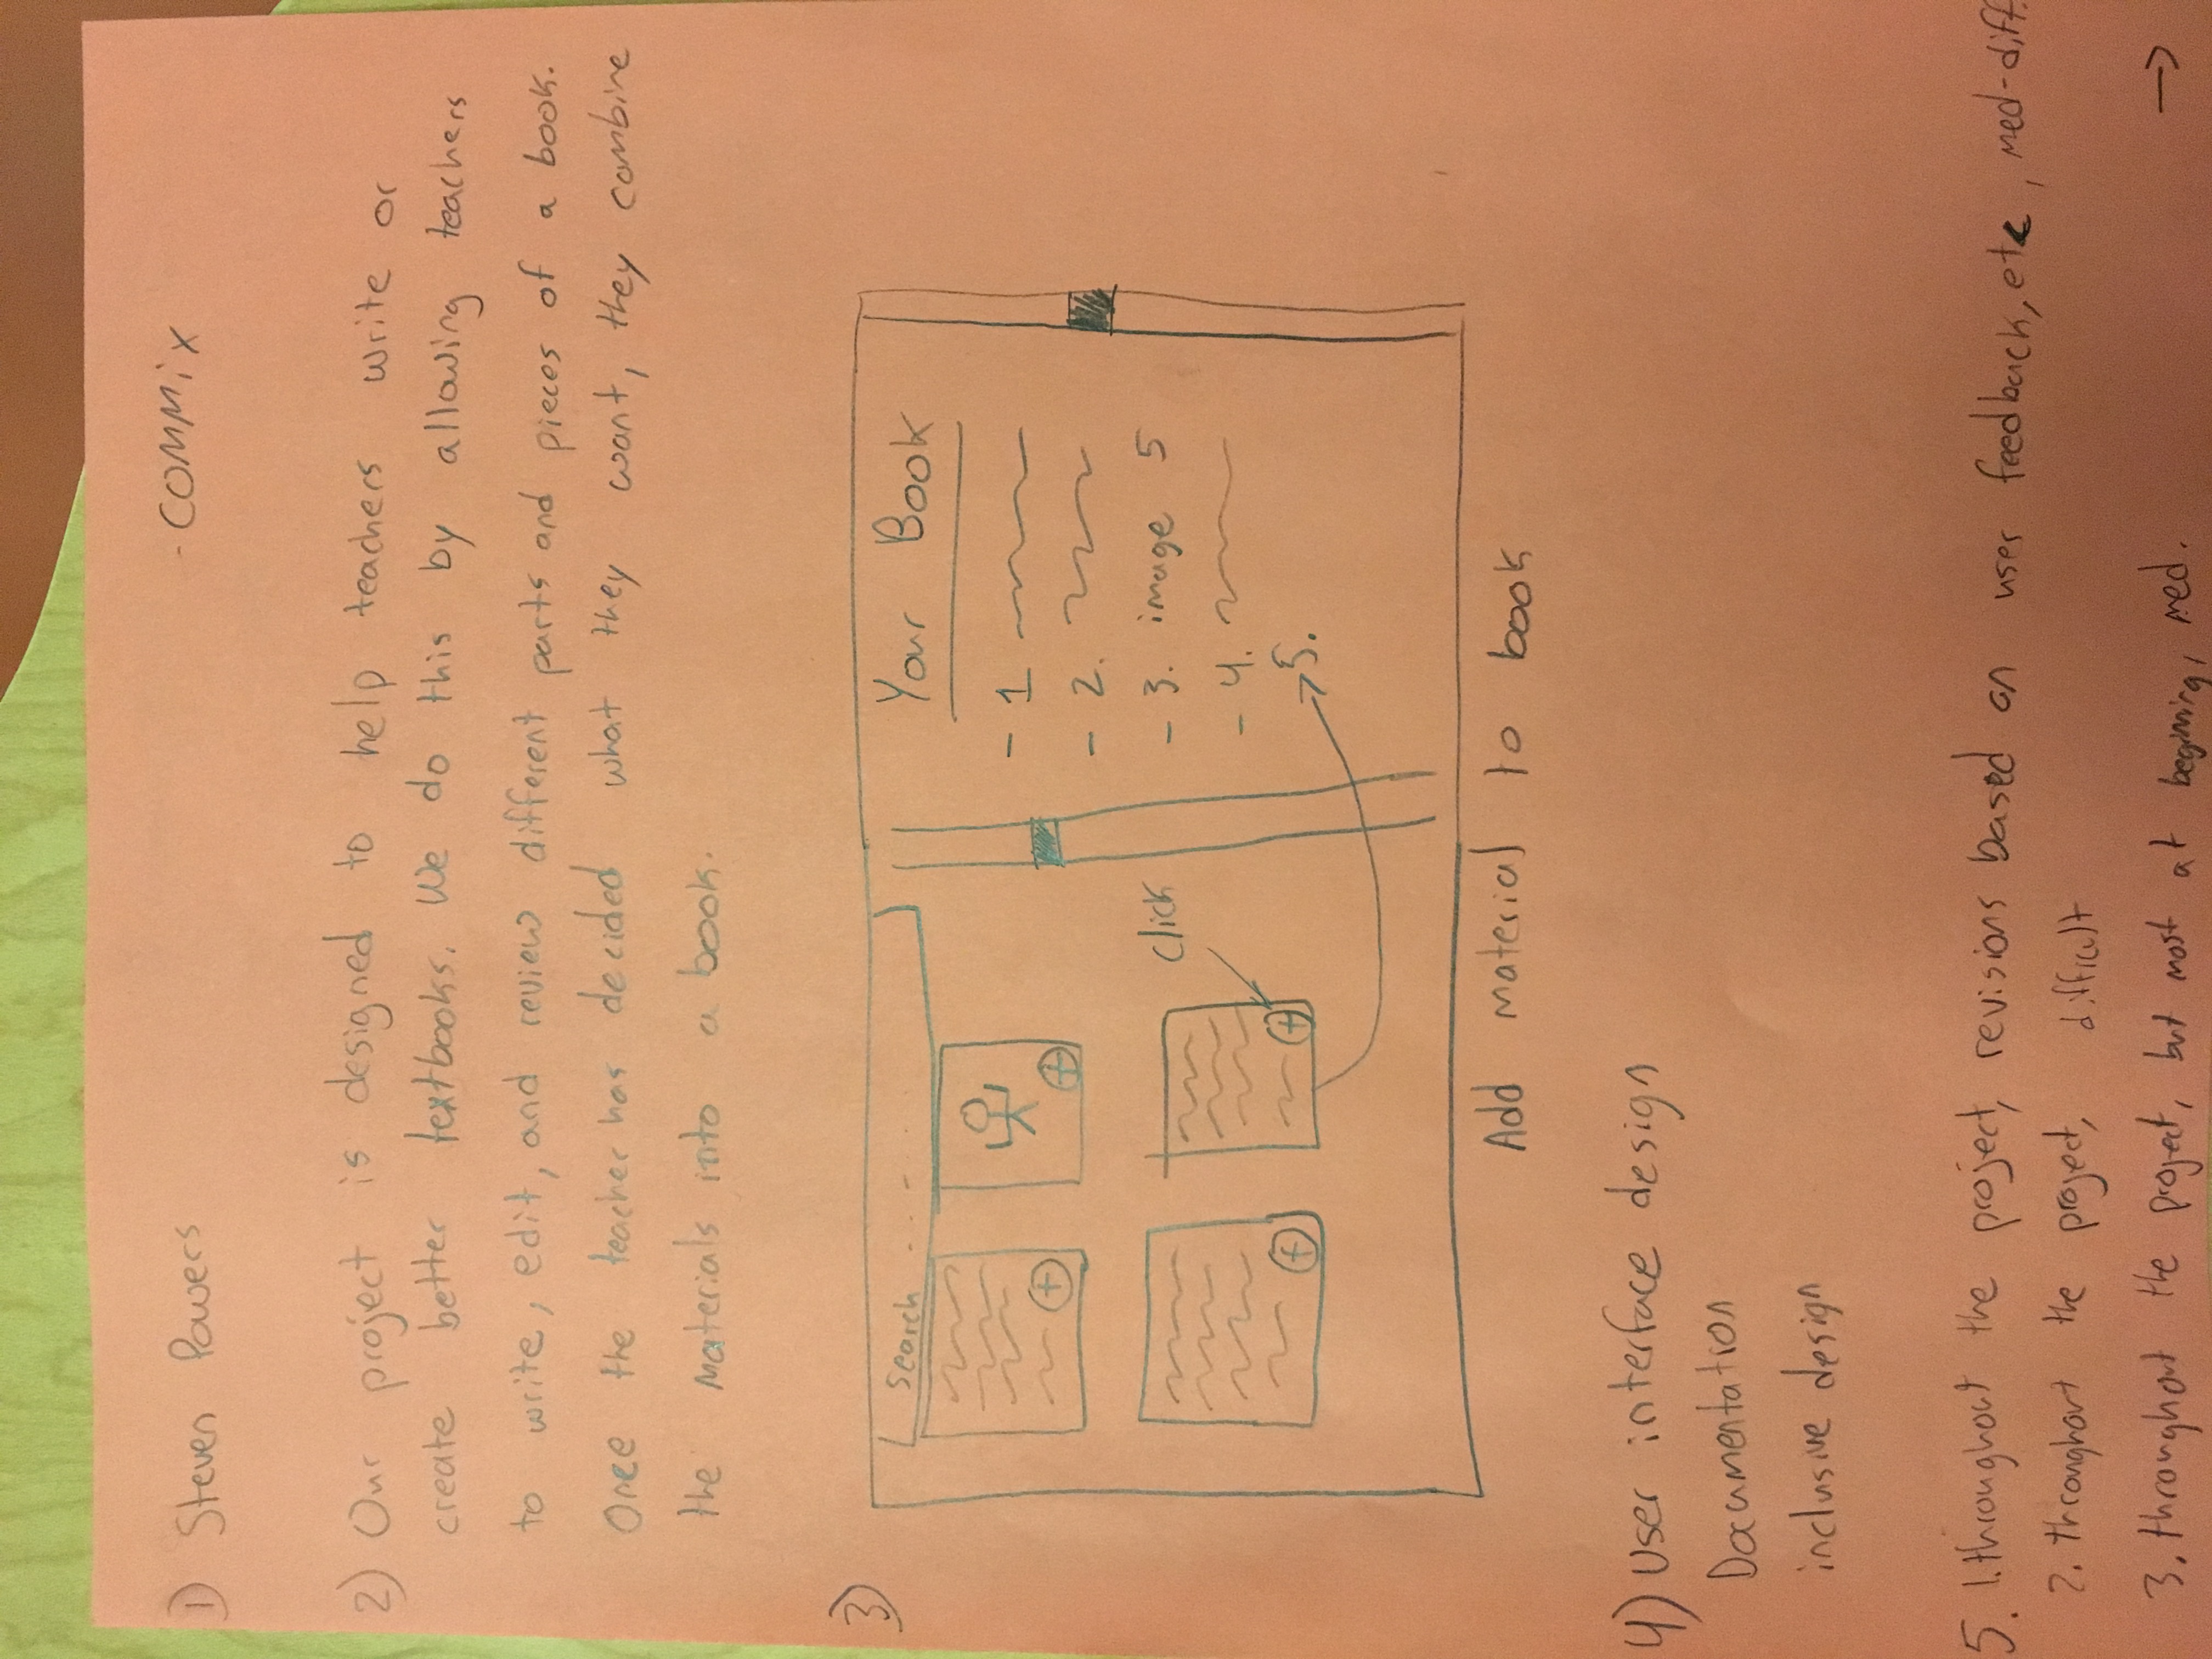 1) Steven Powers
- COMMix
2) Our project is designed to help teachers write or
create better textbooks. We do this by allowing teachers
to write, edit, and review different parts and pieces of a book.
Once the teacher has decided what they want, they combine
the materials into a book.
3)
Search . . - . .
Your Book
- 1
- 2.
- 3. image 5
- 4.
5.
click
Add material to book
4) User interface design
Documentation
inclusive design
5. 1. throughout the project, revisions based on user feedback, etc, med-diff.
2. throughout the project, difficult
3. throughout the project, but most at beginning, med. →